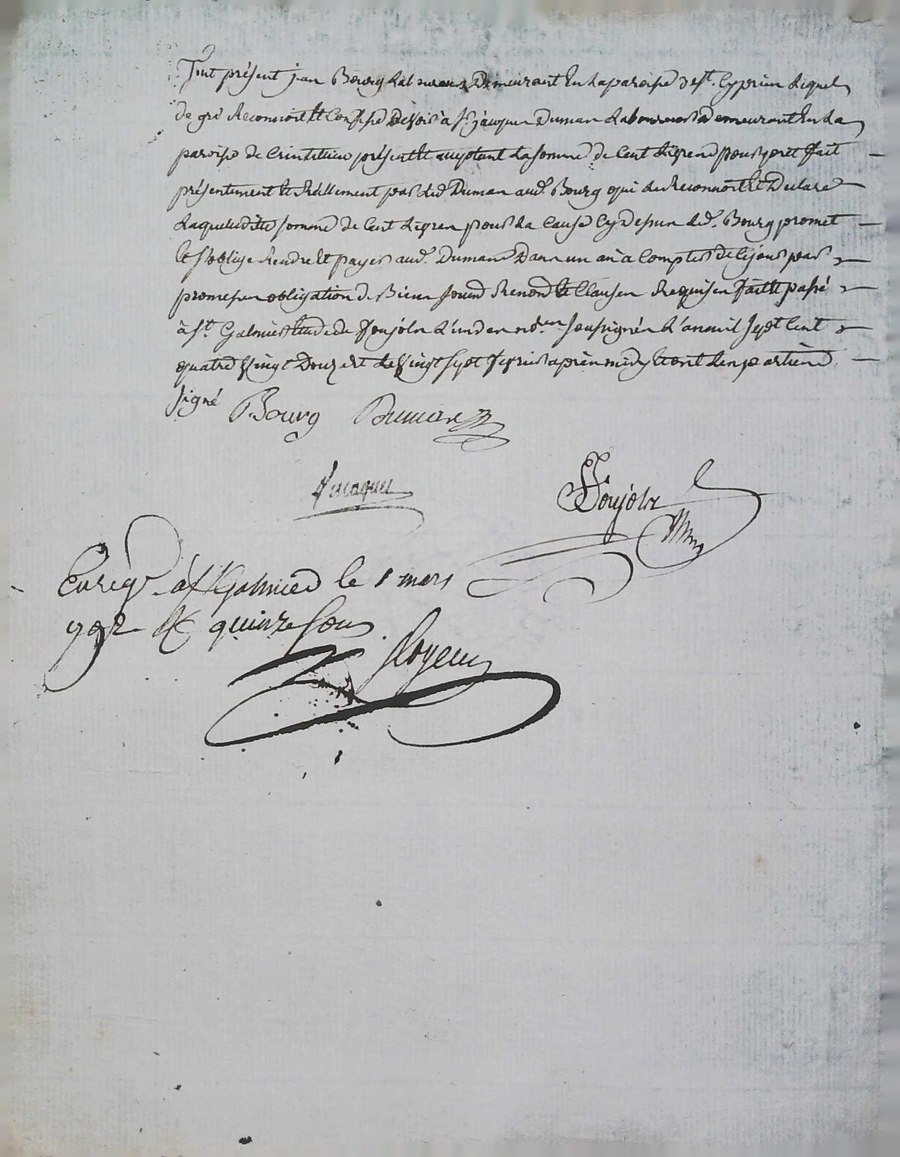 fut présent jean Bourg Laboureur Demeurant En la paroise de st. Cyprien Lequel
de gré Reconnoit Et Confesse Devoir à sr. jacque Dumas Laboureur Demeurant En la
paroise de présent Et aceptant La somme de Cent Livres pour pret fait
présentement Et Réellement par led. Dumas aud. Bourg qui Le Reconnoit Et Declare
Laquelle dite somme de Cent Livres pour La Cause Cy Dessus Led. Bourg promet
Et s'oblige Rendre Et payer aud. Dumas Dans un an à Compter de Ce jour par
promesses obligation de Biens soumis Renond Et Clauses Requises fait Et passé
à st. Galmier Etude de Poujolx L'un des nores. soussignés L'an mil sept Cent
quatre Vingt Douze Et Le Vingt sept fevrier après midy Et ont Les parties
signé Bourg Dumas
Poujolx
Enregé. à st Galmier le 1 mars
792 R quinze sous